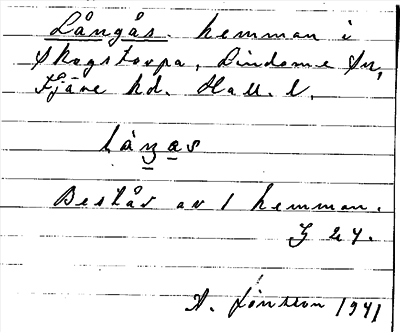 Långås. hemman i
Skogstorpa, Lindome sn,
Fjäre hd. Hall. l.
låŋas
Består av 1 hemman.
J 24.
A. Jönsson 1941